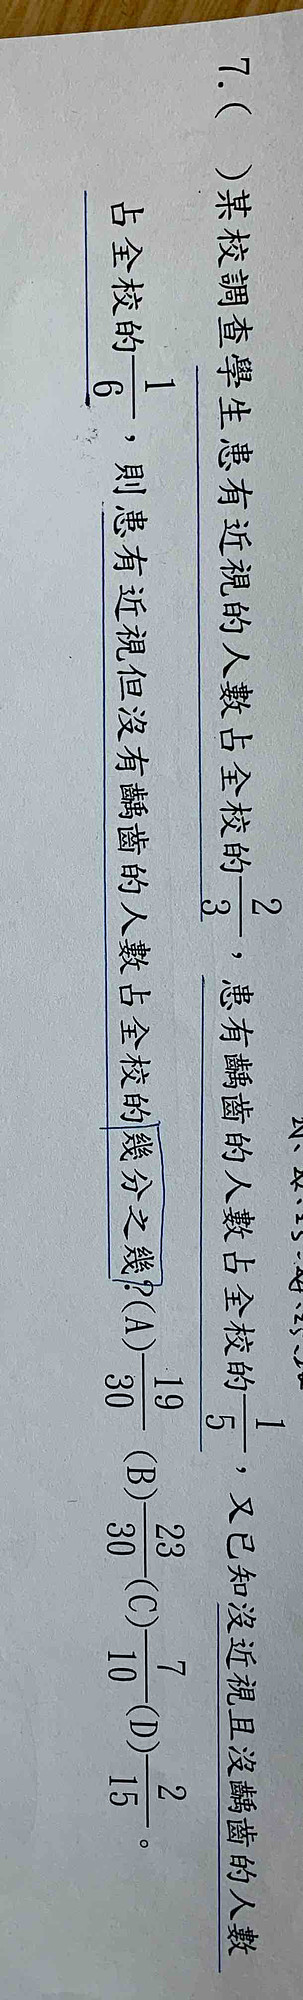 7.(　)某校調查學生患有近視的人數占全校的2/3，患有齲齒的人數占全校的1/5，又已知沒近視且沒齲齒的人數
占全校的1/6，則患有近視但沒有齲齒的人數占全校的幾分之幾?(A)19/30 (B)23/30 (C)7/10 (D)2/15。